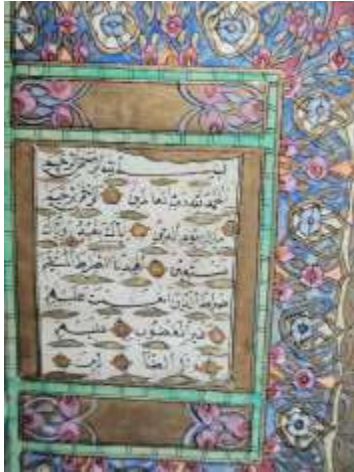 بسم الله الرحمن الرحيم
الحمد لله رب العالمين الرحمن الرحيم
ملك يوم الدين إياك نعبد وإياك
نستعين اهدنا الصراط المستقيم
صراط الذين أنعمت عليهم
غير المغضوب عليهم
ولا الضالين